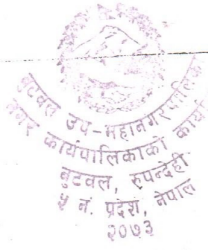 बुटवल उप-महानगरपालिका
नगर कार्यपालिकाको कार्या
बुटवल, रुपन्देही
५ नं. प्रदेश, नेपाल
२०७३